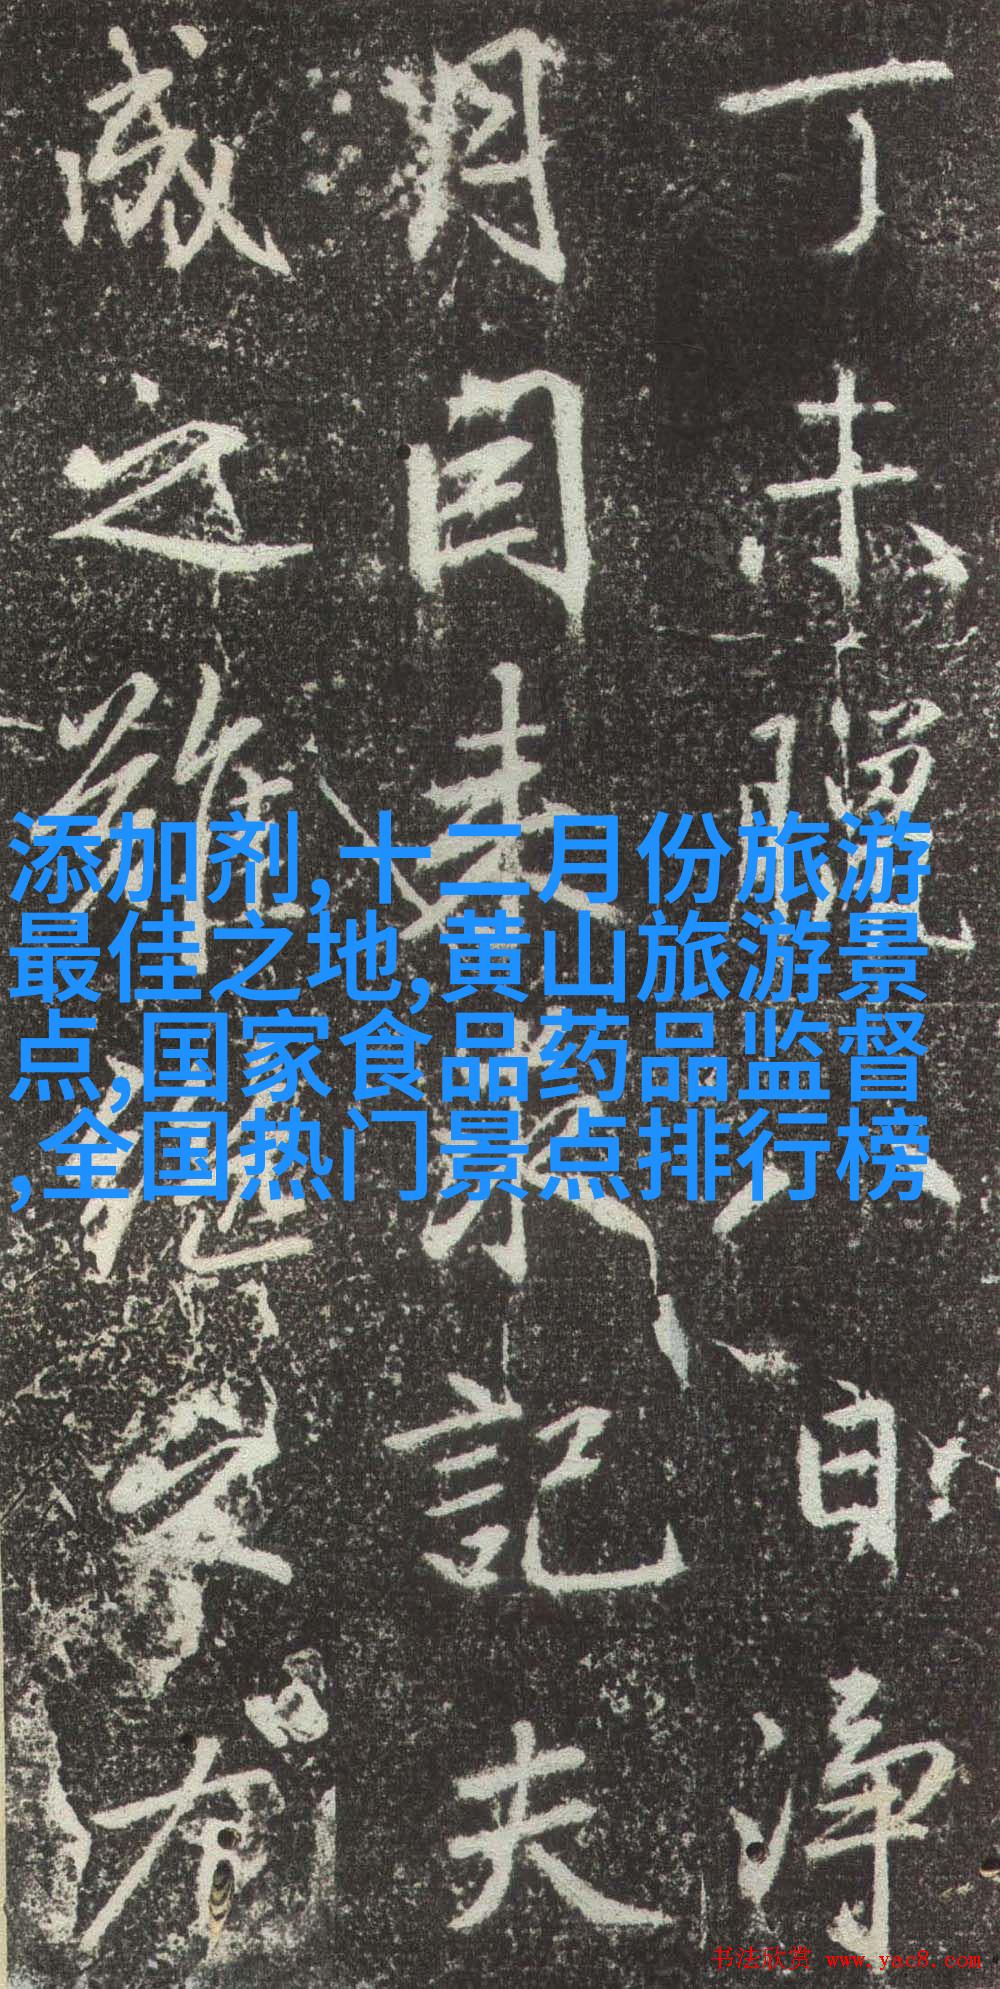 丁未臘八日浄
月目記夫
之
添加剂,十二月份旅游
最佳之地,黄山旅游景
点,国家食品药品监督
,全国热门景点排行榜
书法欣赏 www.yac8.com